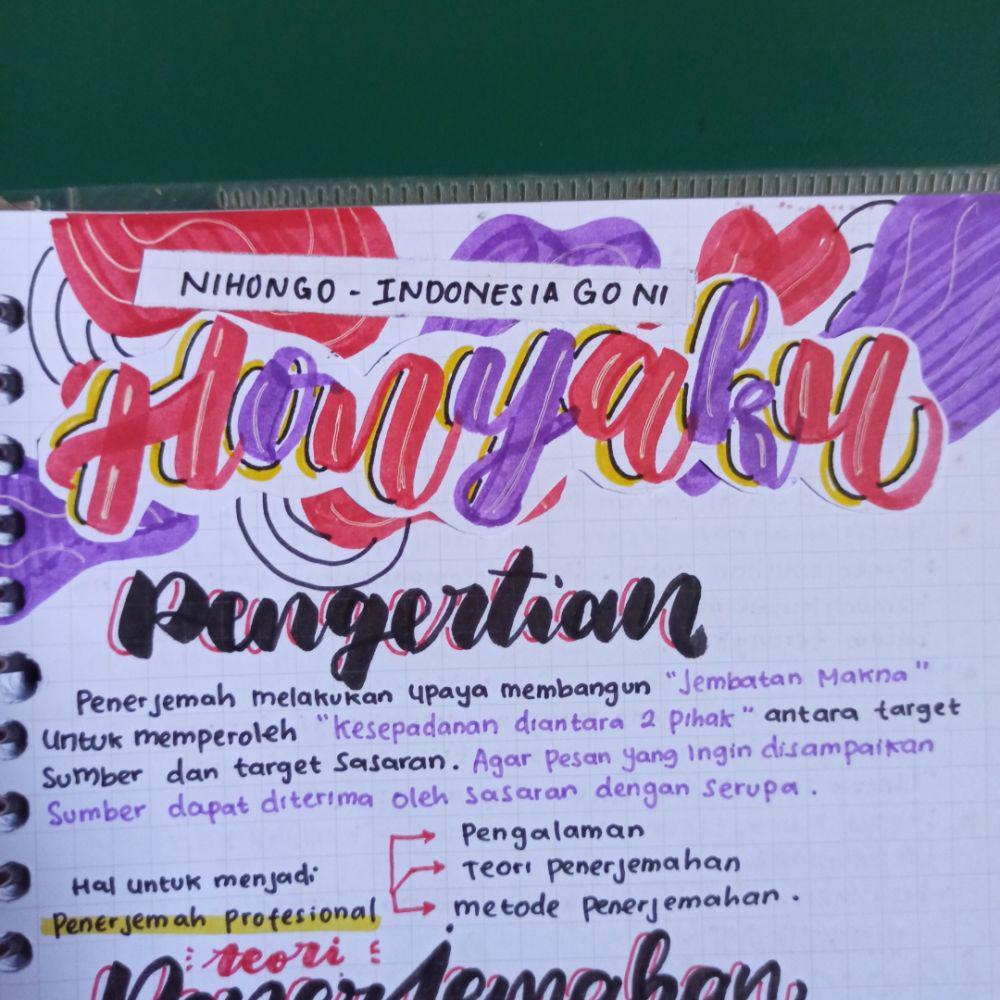 NIHONGO - INDONESIA GO NI
Honyaku
Pengertian
Penerjemah melakukan upaya membangun "Jembatan Makna"
untuk memperoleh "Kesepadanan diantara 2 pihak" antara target
Sumber dan target Sasaran. Agar pesan yang ingin disampaikan
Sumber dapat diterima oleh sasaran dengan serupa.
Pengalaman
Hal untuk menjadi
Teori penerjemahan
Penerjemah profesional
metode penerjemahan.
teori
Penerjemahan